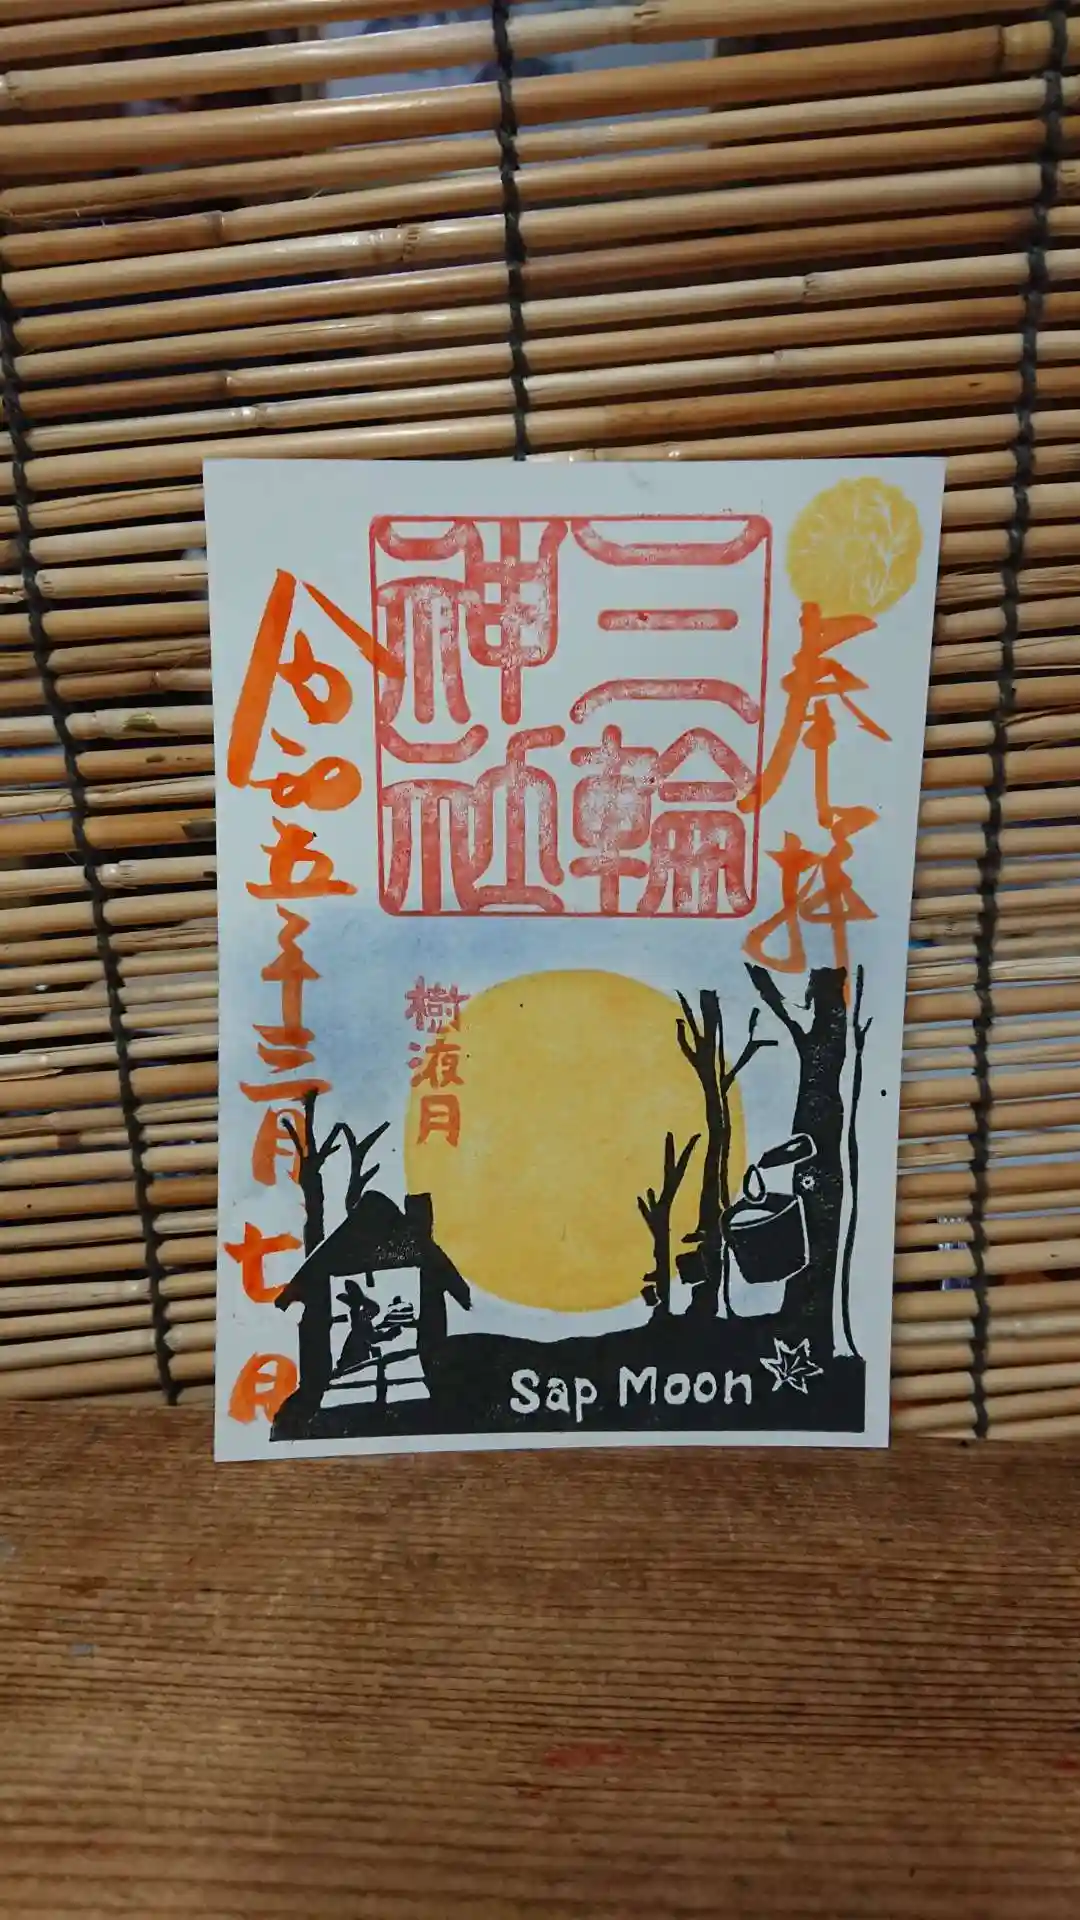 奉拝
三輪
神社
樹液月
令和五年三月七日
Sap Moon